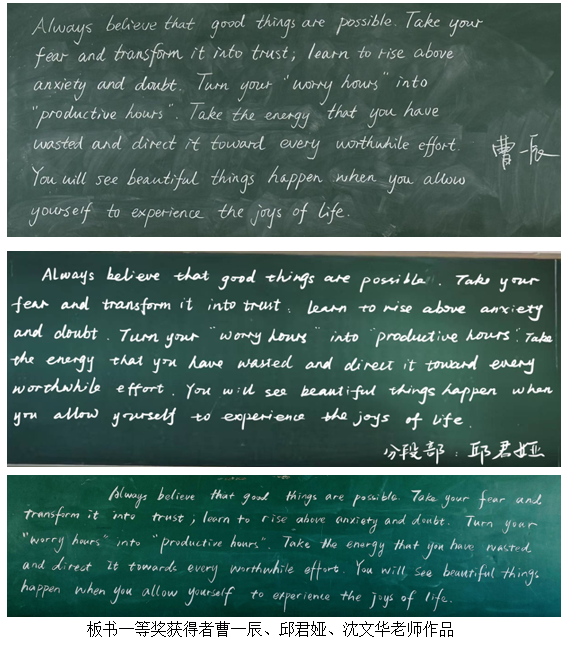 Always believe that good things are possible. Take your
fear and transform it into trust; learn to rise above
anxiety and doubt. Turn your "worry hours" into
"productive hours". Take the energy that you have
wasted and direct it toward every worthwhile effort.
You will see beautiful things happen when you allow
yourself to experience the joys of life.
曹一辰
Always believe that good things are possible. Take your
fear and transform it into trust; learn to rise above anxiety
and doubt. Turn your "worry hours" into "productive hours". Take
the energy that you have wasted and direct it toward every
worthwhile effort. You will see beautiful things happen when
you allow yourself to experience the joys of life.
分段部：邱君娅
Always believe that good things are possible. Take your fear and
transform it into trust; learn to rise above anxiety and doubt. Turn your
"worry hours" into "productive hours". Take the energy that you have wasted
and direct it towards every worthwhile effort. You will see beautiful things
happen when you allow yourself to experience the joys of life.
板书一等奖获得者曹一辰、邱君娅、沈文华老师作品